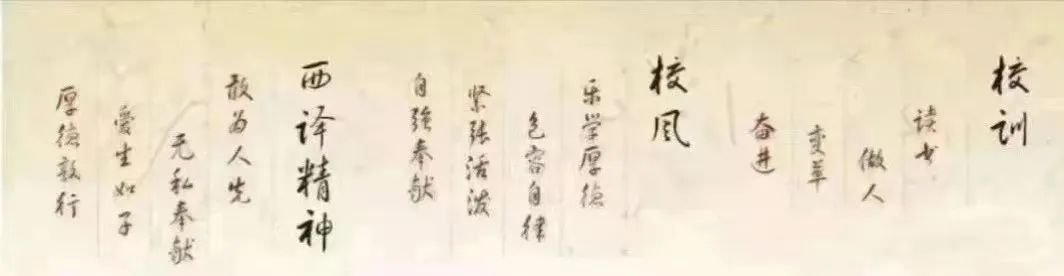 校训
读书
做人
变革
奋进
校风
乐学厚德
包容自律
紧张活泼
自强奉献
西译精神
敢为人先
无私奉献
爱生如子
厚德敦行